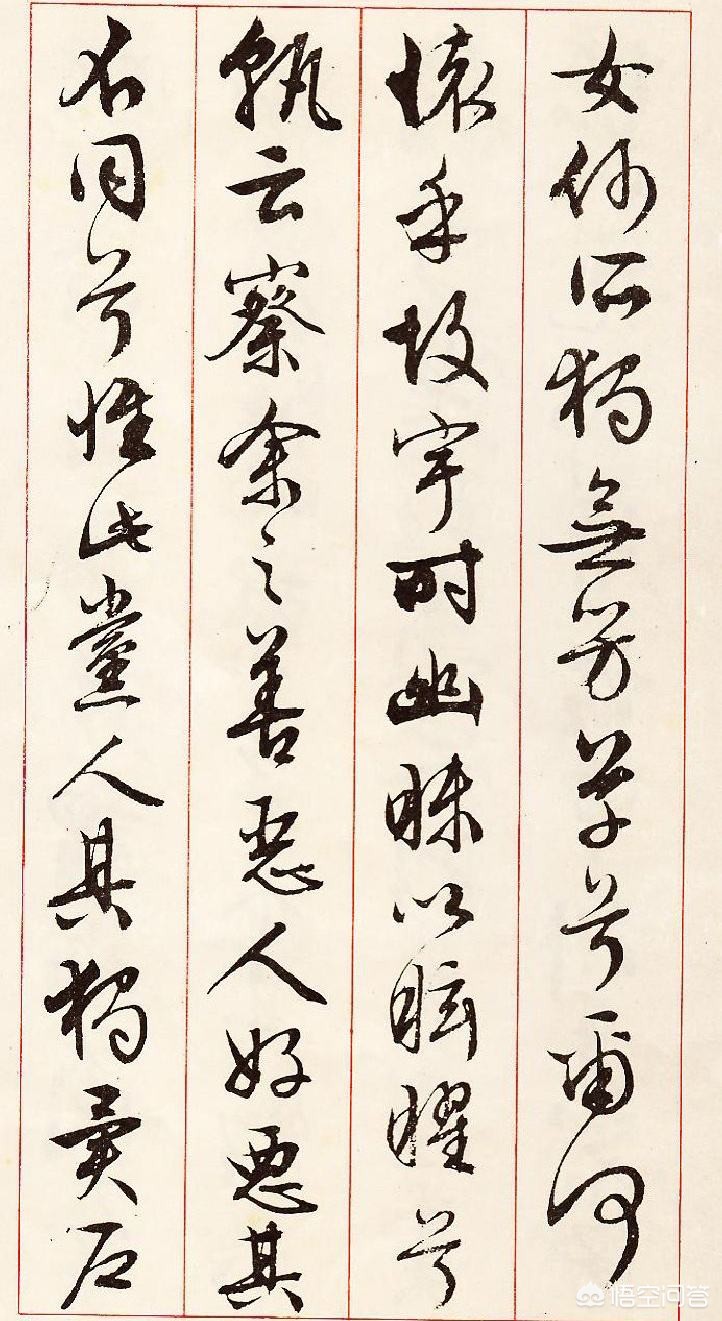 女何所獨無芳草兮爾何
懷乎故宇時幽昧以眩曜兮
孰云察余之善惡人好惡其
不同兮惟此黨人其獨異户
悟空问答